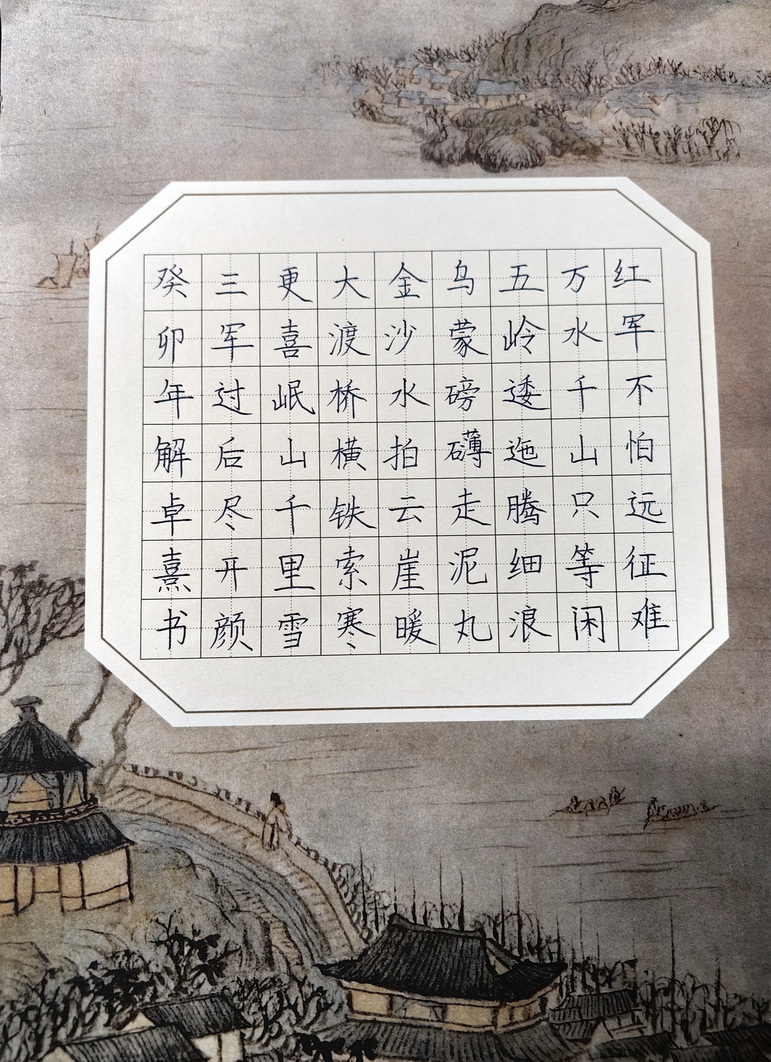 红军不怕远征难
万水千山只等闲
五岭逶迤腾细浪
乌蒙磅礴走泥丸
金沙水拍云崖暖
大渡桥横铁索寒
更喜岷山千里雪
三军过后尽开颜
癸卯年解卓熹书